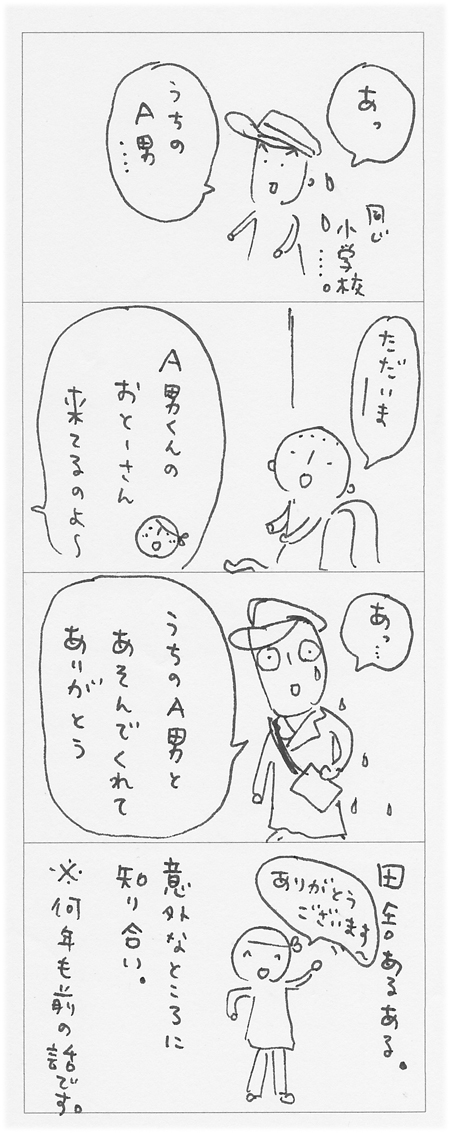 あっ
うちの
A男
……
同じ
小学校
……。
ただいまー
A男くんの
おとーさん
来てるのよ〜
あっ…
うちのA男と
あそんでくれて
ありがとう
田舎あるある。
ありがとう
ございます
意外なところに
知り合い。
※何年も前の話です。